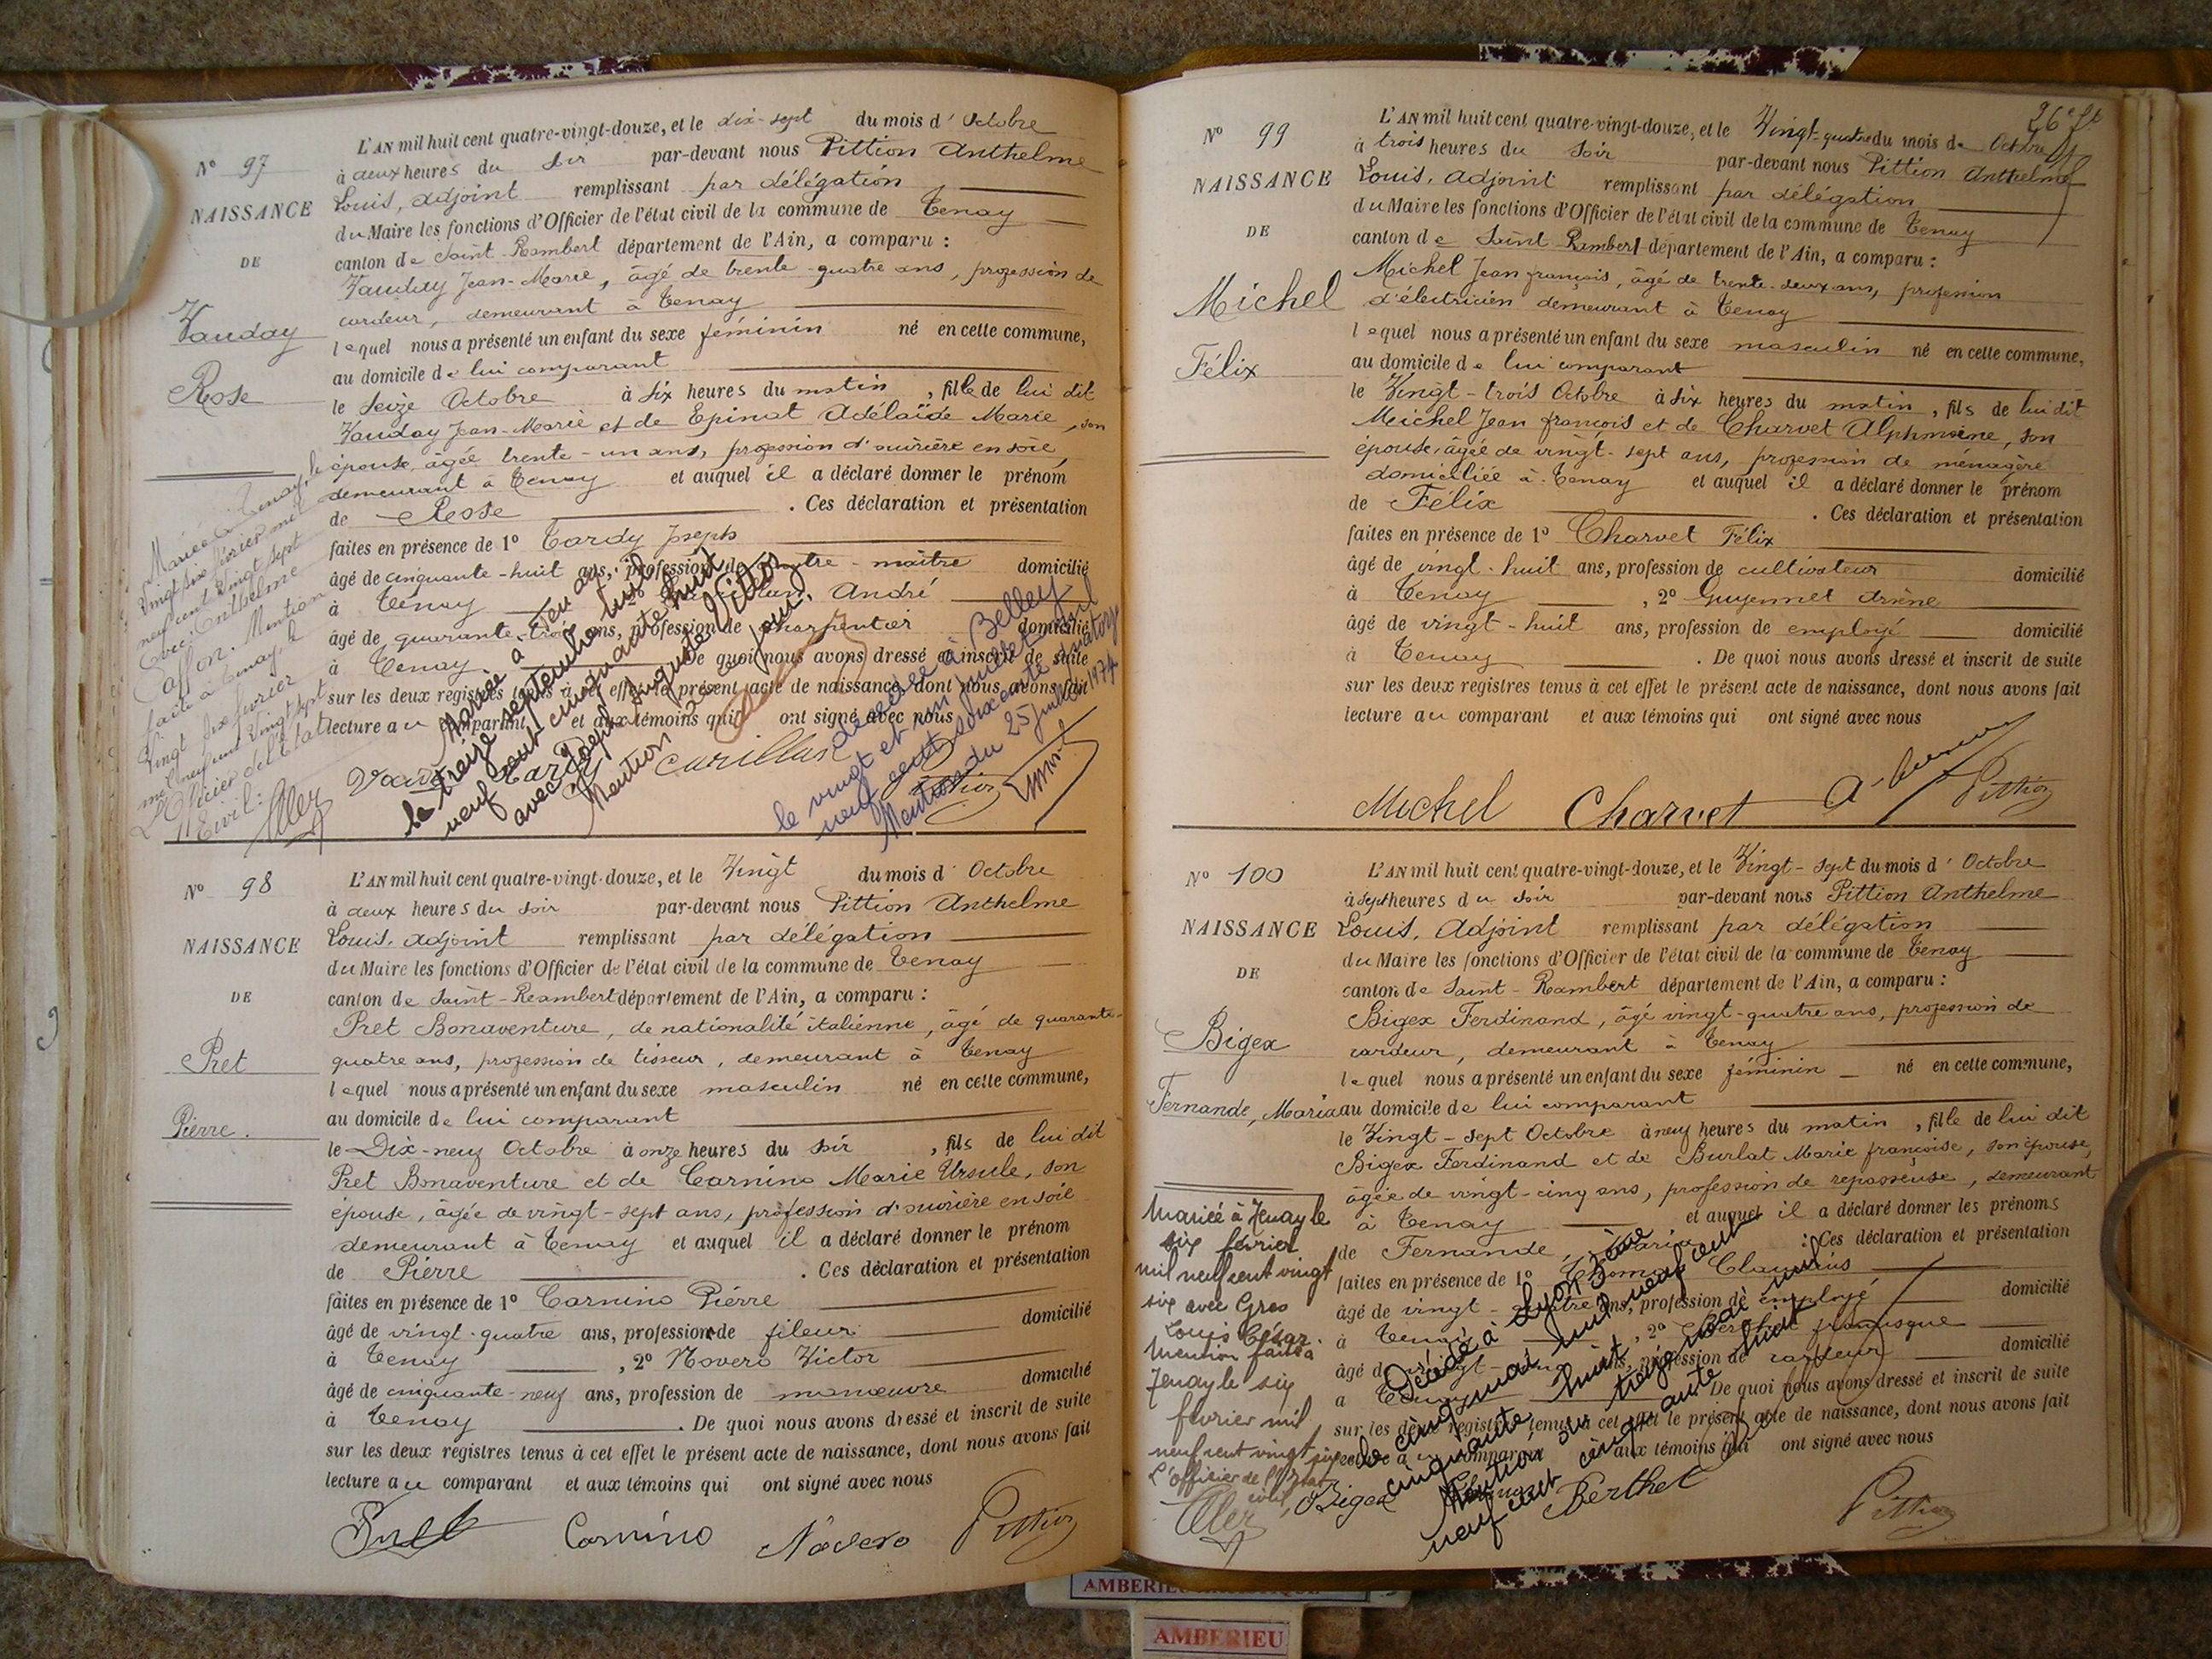 N° 97
NAISSANCE
DE
Vauday
Rose
L'AN mil huit cent quatre-vingt-douze, et le dix-sept du mois d'Octobre
à deux heures du soir par-devant nous Pittion Anthelme
Louis, adjoint remplissant par délégation
du Maire les fonctions d'Officier de l'état civil de la commune de Tenay
canton de Saint-Rambert département de l'Ain, a comparu :
Vauday Jean-Marie, âgé de trente-quatre ans, profession de
cardeur, demeurant à Tenay
lequel nous a présenté un enfant du sexe féminin né en cette commune,
au domicile de lui comparant
le Seize Octobre à six heures du matin, fille de lui dit
Vauday Jean-Marie et de Epinat Adélaïde Marie, son
épouse âgée trente-un ans, profession d'ouvrière en soie
demeurant à Tenay et auquel il a déclaré donner le prénom
de Rose . Ces déclaration et présentation
faites en présence de 1° Tardy Joseph
âgé de cinquante-huit ans, profession de contre-maître domicilié
à Tenay , 2° André
âgé de quarante-trois ans, profession de charpentier domicilié
à Tenay. De quoi nous avons dressé et inscrit de suite
sur les deux registres tenus à cet effet le présent acte de naissance, dont nous avons fait
lecture au comparant et aux témoins qui ont signé avec nous
Mariée à Tenay, le
vingt six février mil
neuf cent vingt sept
avec Anthelme
Mention
faite à Tenay, le
vingt six février
mil neuf cent vingt sept
L'Officier de l'Etat
Civil :
Mariée à Tenay
le treize septembre mil
neuf cent cinquante huit
avec Joseph Auguste Vittoz
Mention du jour.
décédée à Belley
le vingt et un juillet mil
neuf cent soixante quatorze
Mention du 25 juillet 1974
Tardy Pittion
N° 98
NAISSANCE
DE
Pret
Pierre.
L'AN mil huit cent quatre-vingt-douze, et le Vingt du mois d'Octobre
à deux heures du soir par-devant nous Pittion Anthelme
Louis, adjoint remplissant par délégation
du Maire les fonctions d'Officier de l'état civil de la commune de Tenay
canton de Saint-Rambert département de l'Ain, a comparu :
Pret Bonaventure, de nationalité italienne, âgé de quarante-
quatre ans, profession de tisseur, demeurant à Tenay
lequel nous a présenté un enfant du sexe masculin né en cette commune,
au domicile de lui comparant
le Dix-neuf Octobre à onze heures du soir, fils de lui dit
Pret Bonaventure et de Carnino Marie Ursule, son
épouse, âgée de vingt-sept ans, profession d'ouvrière en soie
demeurant à Tenay et auquel il a déclaré donner le prénom
de Pierre . Ces déclaration et présentation
faites en présence de 1° Carnino Pierre
âgé de vingt-quatre ans, profession de fileur domicilié
à Tenay , 2° Novero Victor
âgé de cinquante-neuf ans, profession de manœuvre domicilié
à Tenay . De quoi nous avons dressé et inscrit de suite
sur les deux registres tenus à cet effet le présent acte de naissance, dont nous avons fait
lecture au comparant et aux témoins qui ont signé avec nous
Carnino Novero Pittion
N° 99
NAISSANCE
DE
Michel
Félix
L'AN mil huit cent quatre-vingt-douze, et le Vingt-quatre du mois de Octobre
à trois heures du soir par-devant nous Pittion Anthelme
Louis, adjoint remplissant par délégation
du Maire les fonctions d'Officier de l'état civil de la commune de Tenay
canton de Saint Rambert département de l'Ain, a comparu :
Michel Jean françois, âgé de trente-deux ans, profession
d'électricien demeurant à Tenay
lequel nous a présenté un enfant du sexe masculin né en cette commune,
au domicile de lui comparant
le Vingt-trois Octobre à six heures du matin, fils de lui dit
Michel Jean françois et de Charvet Alphonsine, son
épouse, âgée de vingt-sept ans, profession de ménagère
domiciliée à Tenay et auquel il a déclaré donner le prénom
de Félix . Ces déclaration et présentation
faites en présence de 1° Charvet Félix
âgé de vingt-huit ans, profession de cultivateur domicilié
à Tenay , 2° Guyennet Arsène
âgé de vingt-huit ans, profession de employé domicilié
à Tenay . De quoi nous avons dressé et inscrit de suite
sur les deux registres tenus à cet effet le présent acte de naissance, dont nous avons fait
lecture au comparant et aux témoins qui ont signé avec nous
Michel Charvet Pittion
N° 100
NAISSANCE
DE
Bigex
Fernande, Maria
L'AN mil huit cent quatre-vingt-douze, et le Vingt-sept du mois d'Octobre
à sept heures du soir par-devant nous Pittion Anthelme
Louis, Adjoint remplissant par délégation
du Maire les fonctions d'Officier de l'état civil de la commune de Tenay
canton de Saint-Rambert département de l'Ain, a comparu :
Bigex Ferdinand, âgé vingt-quatre ans, profession de
cardeur, demeurant à Tenay
lequel nous a présenté un enfant du sexe féminin né en cette commune,
au domicile de lui comparant
le Vingt-sept Octobre à neuf heures du matin, fille de lui dit
Bigex Ferdinand et de Burlat Marie françoise, son épouse,
âgée de vingt-cinq ans, profession de repasseuse, demeurant
à Tenay et auquel il a déclaré donner les prénoms
de Fernande, Maria : Ces déclaration et présentation
faites en présence de 1° Claudius
âgé de vingt-quatre ans, profession de employé domicilié
à Tenay , 2° Berthet françisque
âgé de vingt-cinq ans, profession de cardeur domicilié
à Tenay De quoi nous avons dressé et inscrit de suite
sur les deux registres tenus à cet effet le présent acte de naissance, dont nous avons fait
lecture au comparant et aux témoins qui ont signé avec nous
Mariée à Tenay le
six février
mil neuf cent vingt
six avec Gros
Louis César.
Mention faite à
Tenay le six
février mil
neuf cent vingt six
L'officier de l'Etat
civil,
Décédé à Lyon 3ème
le cinq mai mil neuf cent
cinquante huit
Mention du treize mai mil
neuf cent cinquante huit
Bigex Berthet Pittion
AMBERIEU